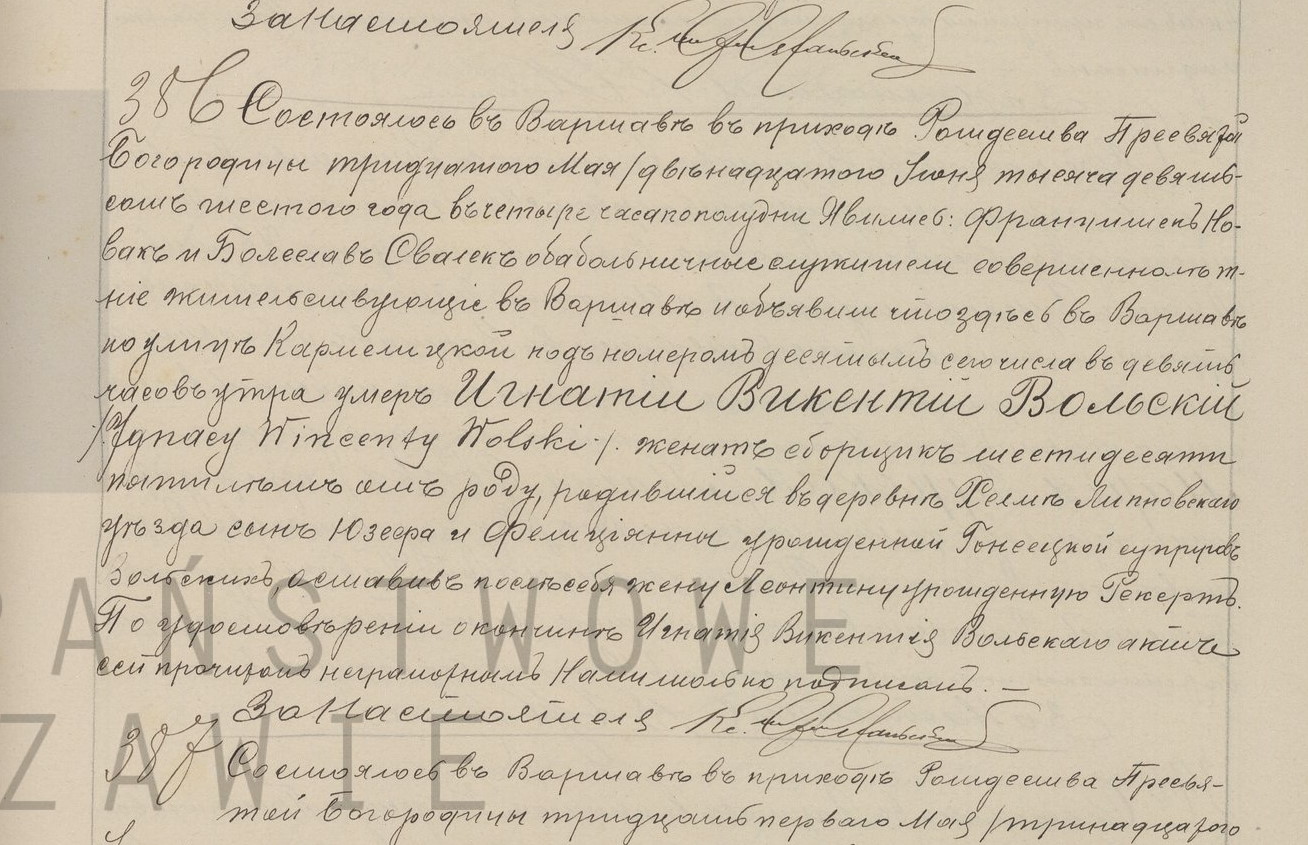 За Настоятеля Кс.
386 Состоялось въ Варшавѣ въ приходѣ Рождества Пресвятой
Богородицы тридцатого Мая /двѣнадцатого Іюня тысяча девять-
сотъ шестого года въ четыре часа пополудни Явились: Францишекъ Но-
вакъ и Болеславъ Свалекъ оба больничные служители совершеннолѣт-
ніе жительствующіе въ Варшавѣ и объявили что здѣсь въ Варшавѣ
по улицѣ Кармелицкой подъ номеромъ десятымъ сего числа въ девять
часовъ утра умеръ Игнатій Викентій Вольскій
/Ignacy Wincenty Wolski/. женатъ сборщикъ шестидесяти
пяти лѣтъ отъ роду, родившійся въ деревнѣ Хелмѣ Липновскаго
уѣзда сынъ Юзефа и Фелиціянны урожденной супруговъ
Вольскихъ, оставивъ послѣ себя жену Леонтину урожденную Рекертъ.
По удостовѣреніи о кончинѣ Игнатія Викентія Вольскаго актъ
сей прочитанъ неграмотнымъ Нами только подписанъ. —
За Настоятеля Кс.
387 Состоялось въ Варшавѣ въ приходѣ Рождества Пресвя-
той Богородицы тридцать перваго Мая /тринадцатого
PAŃSTWOWE
ZAWIE